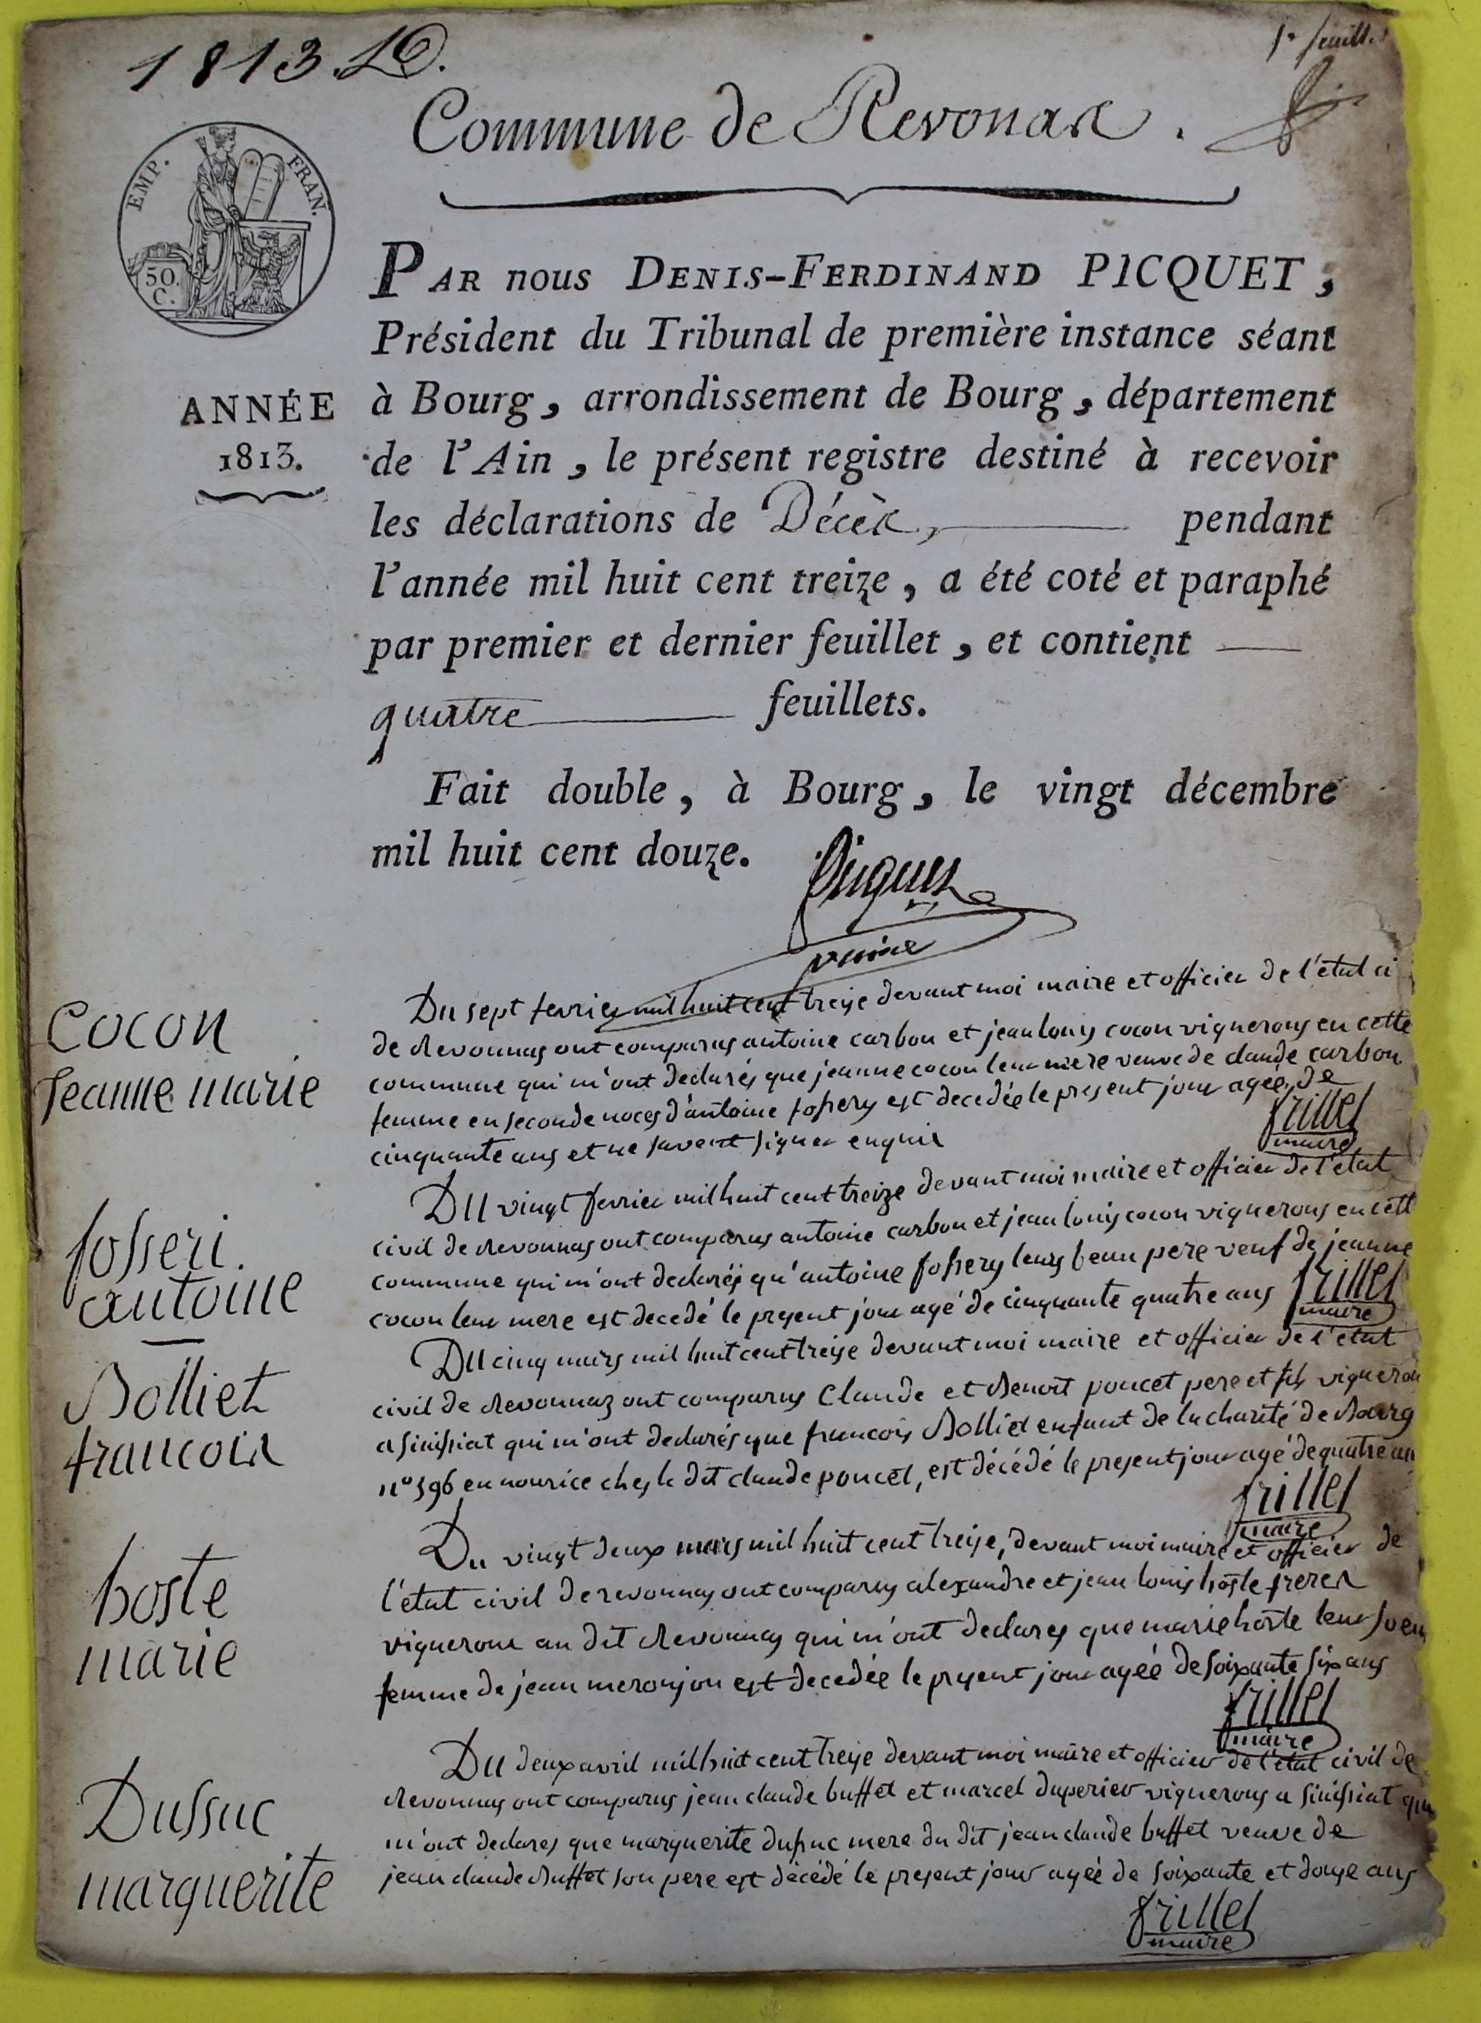 1813. D.
1er feuillet
Commune de Revonas.
EMP. FRAN.
50. C.
ANNÉE
1813.
PAR nous DENIS-FERDINAND PICQUET,
Président du Tribunal de première instance séant
à Bourg, arrondissement de Bourg, département
de l'Ain, le présent registre destiné à recevoir
les déclarations de Décès, pendant
l'année mil huit cent treize, a été coté et paraphé
par premier et dernier feuillet, et contient
quatre feuillets.
Fait double, à Bourg, le vingt décembre
mil huit cent douze.
Picquet
Cocon
Jeanne marie
Du sept fevrier mil huit cent treize devant moi maire et officier de l'état ci
de Revonnas ont comparus antoine carbon et jean louis cocon vignerons en cette
commune qui m'ont declarés que jeanne cocon leur mere veuve de claude carbon
femme en seconde noces d'antoine fossery est decedée le present jour agée de
cinquante ans et ne savent signer enquis
frillet
maire
fosseri
antoine
DU vingt fevrier mil huit cent treize devant moi maire et officier de l'état
civil de Revonnas ont comparus antoine carbon et jean louis cocon vignerons en cett
commune qui m'ont declarés qu'antoine fossery leurs beau pere veuf de jeanne
cocon leur mere est decedé le present jour agé de cinquante quatre ans
frillet
maire
Bolliet
francois
DU cinq mars mil huit cent treize devant moi maire et officier de l'état
civil de Revonnas ont comparus Claude et Benoit poncet pere et fils vigneron
a Sinissiat qui m'ont declarés que francois Bolliet enfant de la charité de Bourg
n° 596 en nourice ches le dit claude poncet, est décédé le present jour agé de quatre an
frillet
maire
hoste
marie
Du vingt deux mars mil huit cent treize, devant moi maire et officier de
l'état civil de revonnas ont comparus alexandre et jean louis hoste freres
vignerons au dit Revonnas qui m'ont declares que marie hoste leur soeur
femme de jean meronjon est decedée le present jour agée de soixante six ans
frillet
maire
Dussuc
marguerite
DU deux avril mil huit cent treize devant moi maire et officier de l'état civil de
Revonnas ont comparus jean claude buffet et marcel duperier vignerons a Sinissiat qui
m'ont declares que marguerite dussuc mere du dit jean claude buffet veuve de
jean claude Buffet son pere est décédé le present jour agée de soixante et douze ans
frillet
maire